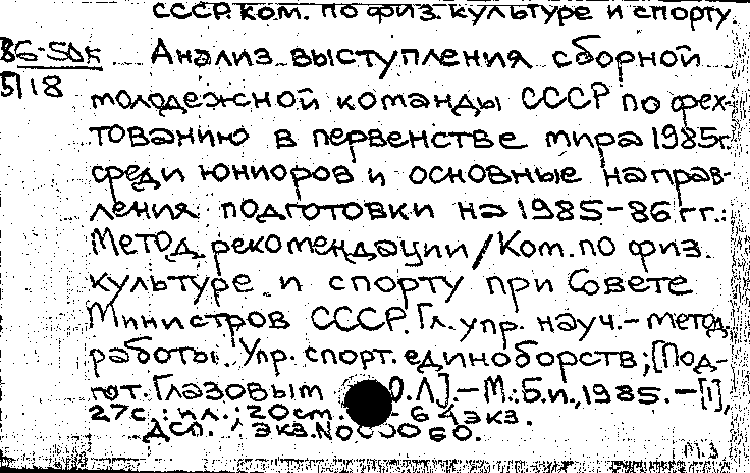 СССР. ком. по физ. культуре и спорту.
86-5DK Анализ выступления сборной
5118 молодежной команды СССР по фех-
тованию в первенстве мира 1985г.
среди юниоров и основные направ-
ления подготовки на 1985-86 гг.:
Метод. рекомендации / Ком. по физ.
культуре и спорту при Совете
Министров СССР. Гл. упр. науч.-метод.
работы. Упр. спорт. единоборств; [Под-
гот. Глазовым О.Л]. - М.: Б.и., 1985. - [1],
27с.: ил.; 20 см. - экз.
Дсп. экз.